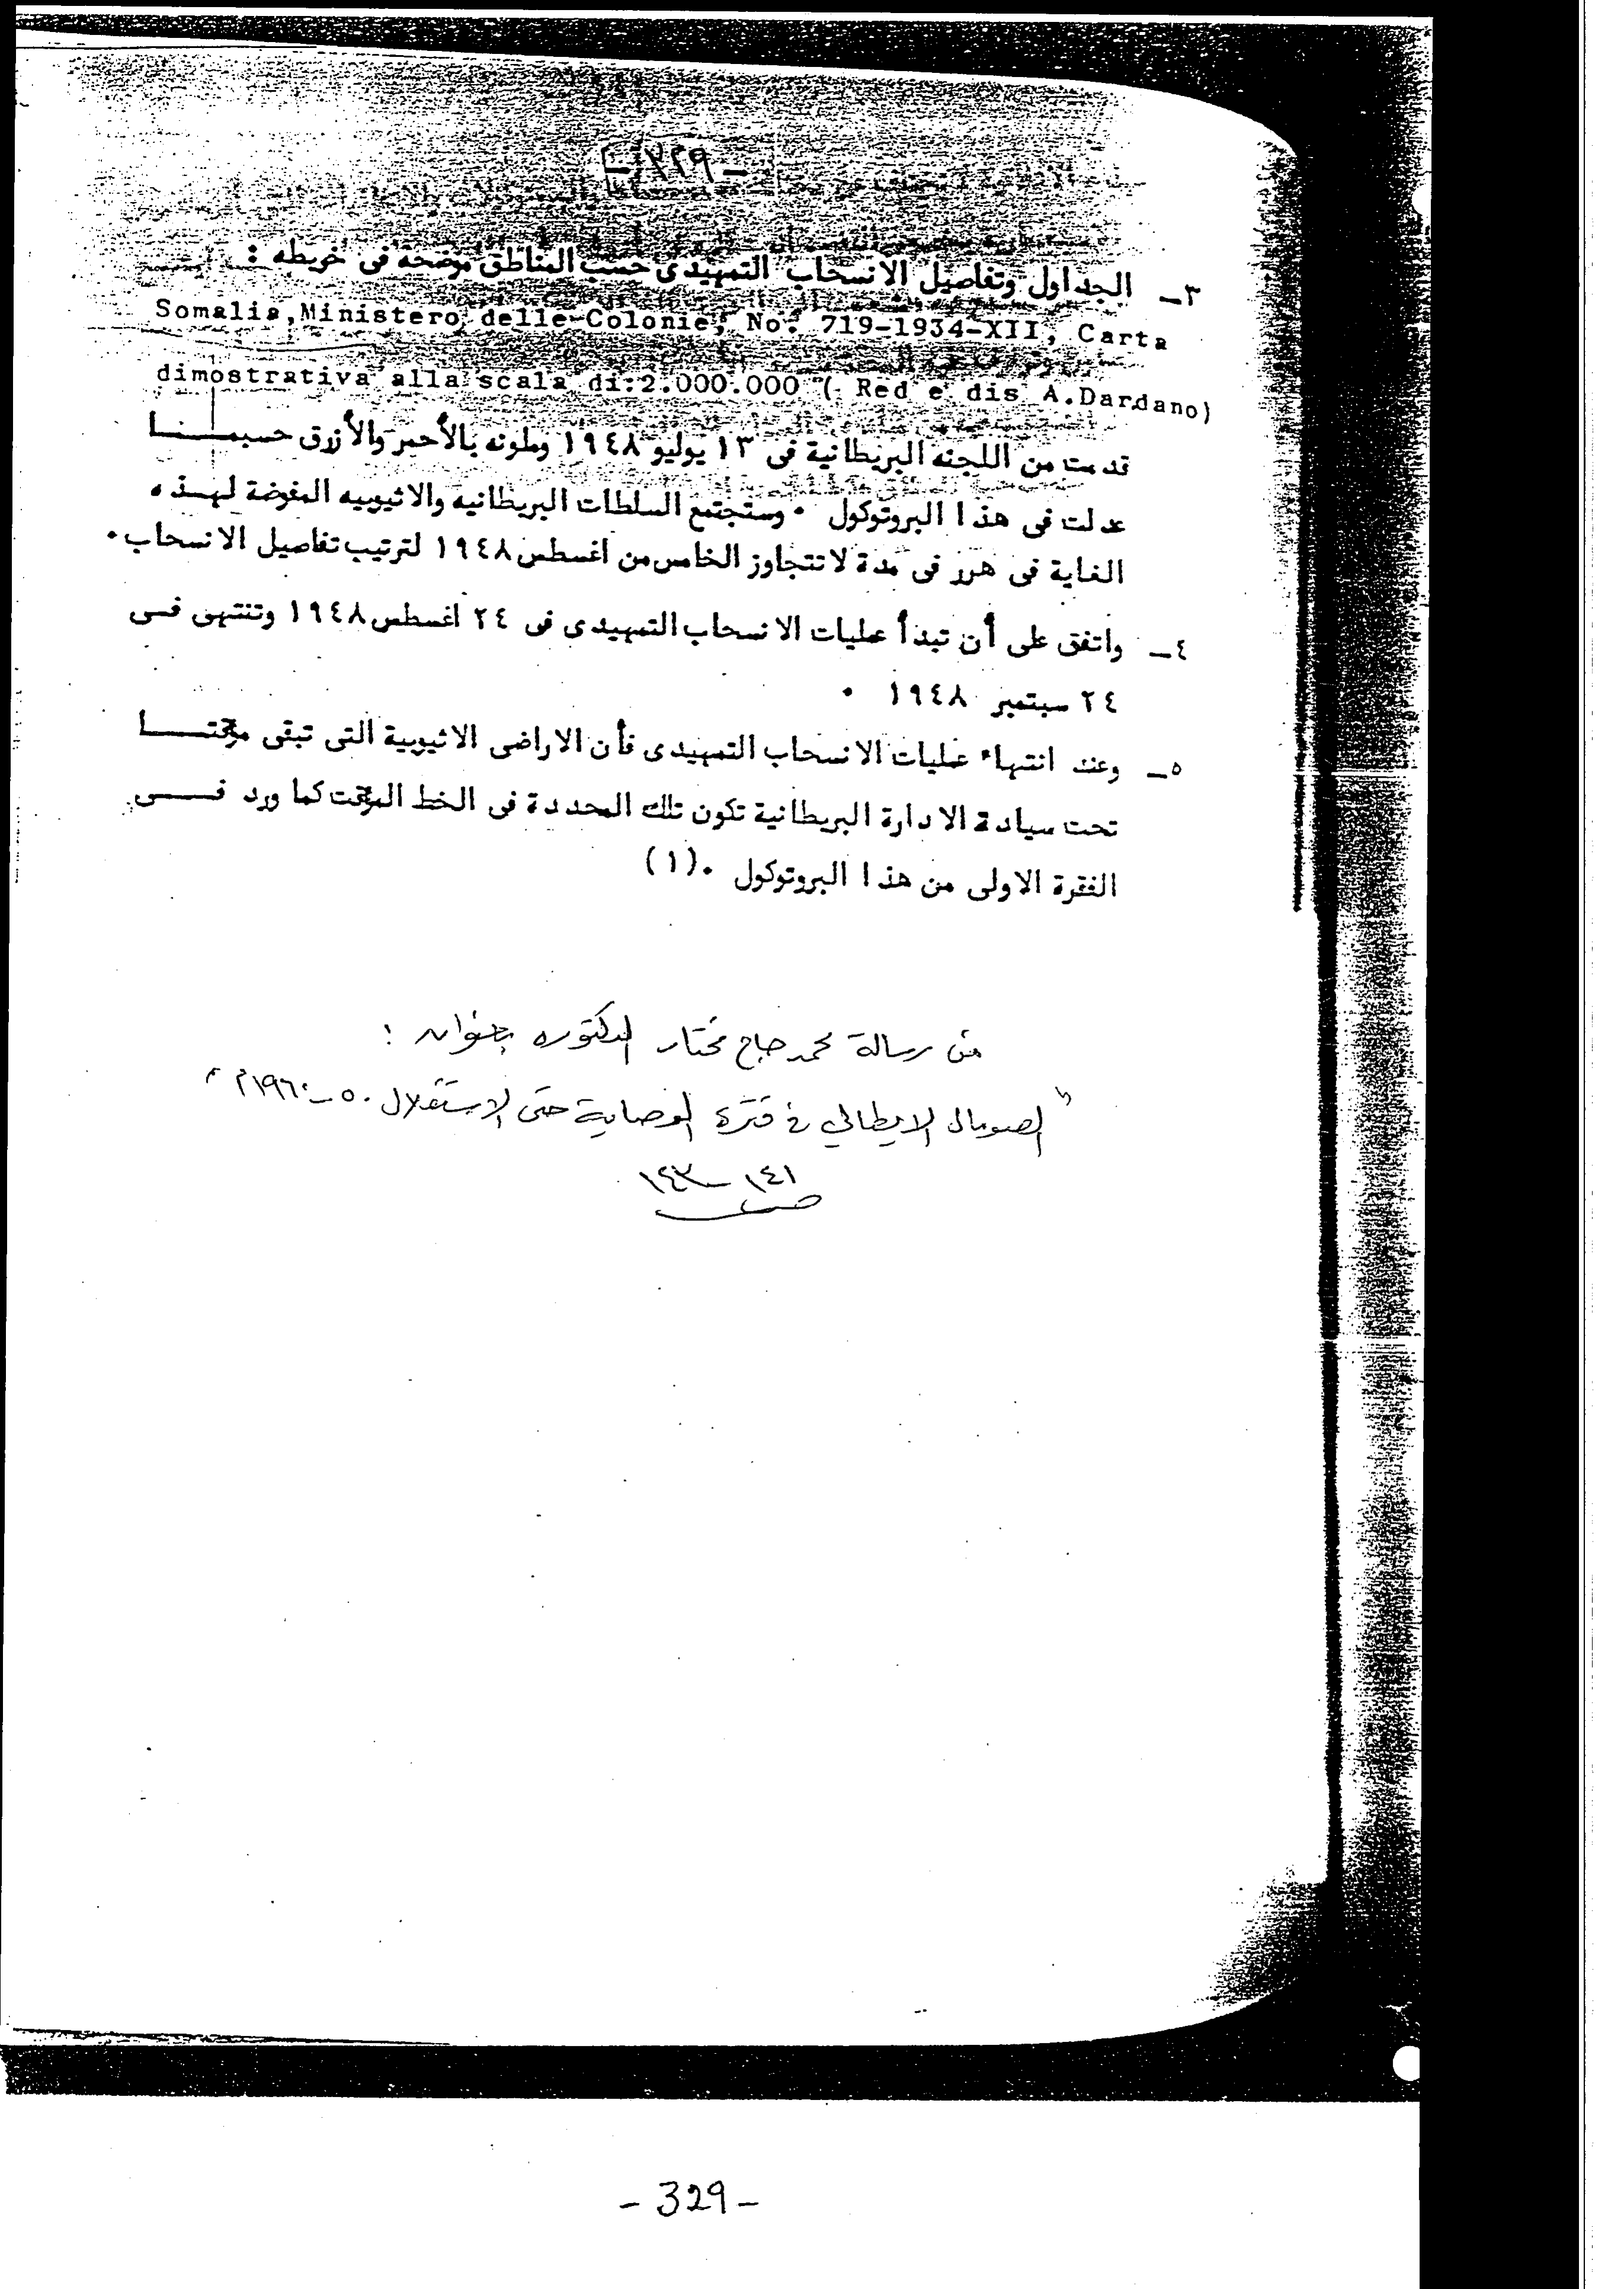 - ٣٢٩ -
٣ـ الجداول وتفاصيل الانسحاب التمهيدى حسب المناطق موضحه فى خريطه :
Somalia,Ministero delle Colonie, No. 719-1934-XII, Carta
dimostrativa alla scala di:2.000.000 "( Red e dis A.Dardano)
قدمت من اللجنه البريطانية فى ١٣ يوليو ١٩٤٨ وملونه بالأحمر والأزرق حسبمـــا
عدلت فى هذا البروتوكول ٠ وستجتمع السلطات البريطانيه والاثيوبيه المفوضة لهـذه
الغاية فى هرر فى مدة لا تتجاوز الخامس من اغسطس ١٩٤٨ لترتيب تفاصيل الانسحاب ٠
٤ـ واتفق على أن تبدأ عمليات الانسحاب التمهيدى فى ٢٤ اغسطس ١٩٤٨ وتنتهى فـى
٢٤ سبتمبر ١٩٤٨ ٠
٥ـ وعند انتهاء عمليات الانسحاب التمهيدى فأن الاراضى الاثيوبية التى تبقى مؤقتـــا
تحت سيادة الادارة البريطانية تكون تلك المحددة فى الخط المؤقت كما ورد فــــى
الفقرة الاولى من هذا البروتوكول ٠(١)
من رسالة محمد حاج مختار الدكتوره بعنوان :
" الصومال الايطالي في فترة الوصاية حتى الاستقلال ٥٠ـ١٩٦٠م "
ص ١٤١ - ١٤٣
- 329 -